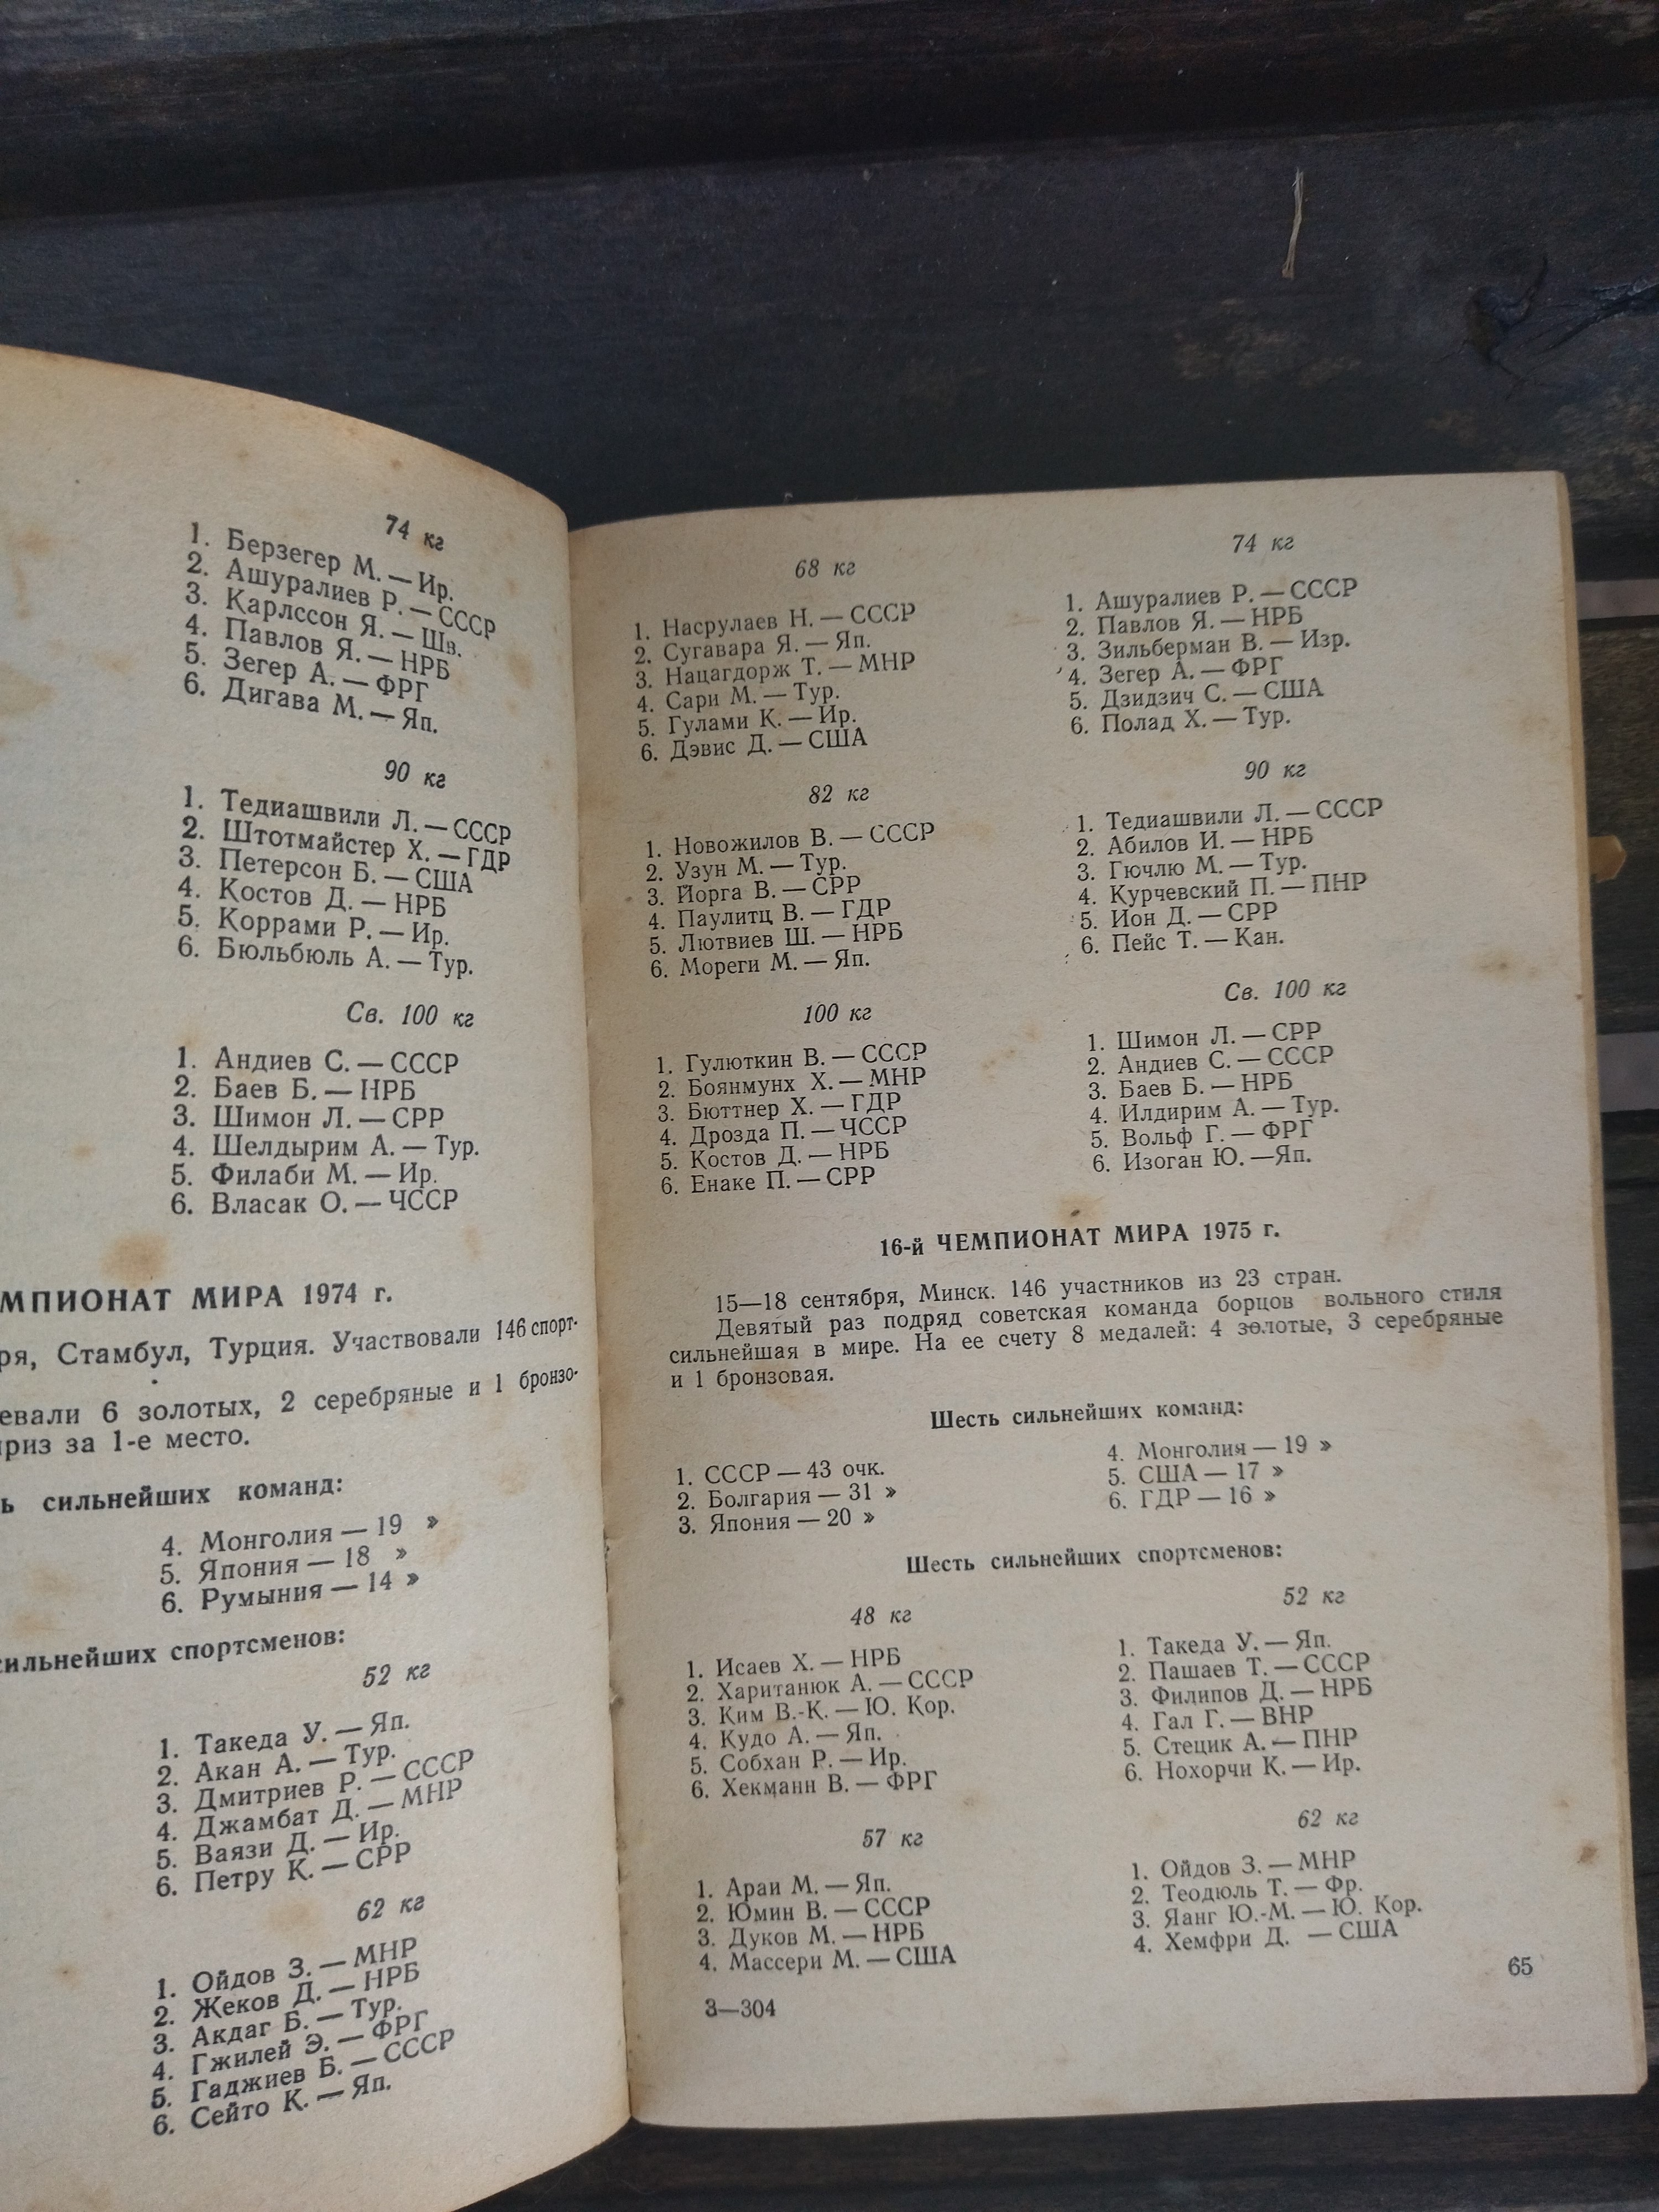 74 кг
1. Берзегер М. — Ир.
2. Ашуралиев Р. — СССР
3. Карлссон Я. — Шв.
4. Павлов Я. — НРБ
5. Зегер А. — ФРГ
6. Дигава М. — Яп.
90 кг
1. Тедиашвили Л. — СССР
2. Штотмайстер Х. — ГДР
3. Петерсон Б. — США
4. Костов Д. — НРБ
5. Коррами Р. — Ир.
6. Бюльбюль А. — Тур.
Св. 100 кг
1. Андиев С. — СССР
2. Баев Б. — НРБ
3. Шимон Л. — СРР
4. Шелдырим А. — Тур.
5. Филаби М. — Ир.
6. Власак О. — ЧССР
МПИОНАТ МИРА 1974 г.
ря, Стамбул, Турция. Участвовали 146 спорт-
евали 6 золотых, 2 серебряные и 1 бронзо-
приз за 1-е место.
ь сильнейших команд:
4. Монголия — 19 »
5. Япония — 18 »
6. Румыния — 14 »
сильнейших спортсменов:
52 кг
1. Такеда У. — Яп.
2. Акан А. — Тур.
3. Дмитриев Р. — СССР
4. Джамбат Д. — МНР
5. Ваязи Д. — Ир.
6. Петру К. — СРР
62 кг
1. Ойдов З. — МНР
2. Жеков Д. — НРБ
3. Акдаг Б. — Тур.
4. Гжилей Э. — ФРГ
5. Гаджиев Б. — СССР
6. Сейто К. — Яп.
68 кг
1. Насрулаев Н. — СССР
2. Сугавара Я. — Яп.
3. Нацагдорж Т. — МНР
4. Сари М. — Тур.
5. Гулами К. — Ир.
6. Дэвис Д. — США
74 кг
1. Ашуралиев Р. — СССР
2. Павлов Я. — НРБ
3. Зильберман В. — Изр.
4. Зегер А. — ФРГ
5. Дзидзич С. — США
6. Полад Х. — Тур.
82 кг
1. Новожилов В. — СССР
2. Узун М. — Тур.
3. Йорга В. — СРР
4. Паулитц В. — ГДР
5. Лютвиев Ш. — НРБ
6. Мореги М. — Яп.
90 кг
1. Тедиашвили Л. — СССР
2. Абилов И. — НРБ
3. Гючлю М. — Тур.
4. Курчевский П. — ПНР
5. Ион Д. — СРР
6. Пейс Т. — Кан.
100 кг
1. Гулюткин В. — СССР
2. Боянмунх Х. — МНР
3. Бюттнер Х. — ГДР
4. Дрозда П. — ЧССР
5. Костов Д. — НРБ
6. Енаке П. — СРР
Св. 100 кг
1. Шимон Л. — СРР
2. Андиев С. — СССР
3. Баев Б. — НРБ
4. Илдирим А. — Тур.
5. Вольф Г. — ФРГ
6. Изоган Ю. —Яп.
16-й ЧЕМПИОНАТ МИРА 1975 г.
15—18 сентября, Минск. 146 участников из 23 стран.
Девятый раз подряд советская команда борцов вольного стиля
сильнейшая в мире. На ее счету 8 медалей: 4 золотые, 3 серебряные
и 1 бронзовая.
Шесть сильнейших команд:
1. СССР — 43 очк.
2. Болгария — 31 »
3. Япония — 20 »
4. Монголия — 19 »
5. США — 17 »
6. ГДР — 16 »
Шесть сильнейших спортсменов:
48 кг
1. Исаев Х. — НРБ
2. Хаританюк А. — СССР
3. Ким В.-К. — Ю. Кор.
4. Кудо А. — Яп.
5. Собхан Р. — Ир.
6. Хекманн В. — ФРГ
52 кг
1. Такеда У. — Яп.
2. Пашаев Т. — СССР
3. Филипов Д. — НРБ
4. Гал Г. — ВНР
5. Стецик А. — ПНР
6. Нохорчи К. — Ир.
57 кг
1. Араи М. — Яп.
2. Юмин В. — СССР
3. Дуков М. — НРБ
4. Массери М. — США
62 кг
1. Ойдов З. — МНР
2. Теодюль Т. — Фр.
3. Янг Ю.-М. — Ю. Кор.
4. Хемфри Д. — США
3—304
65